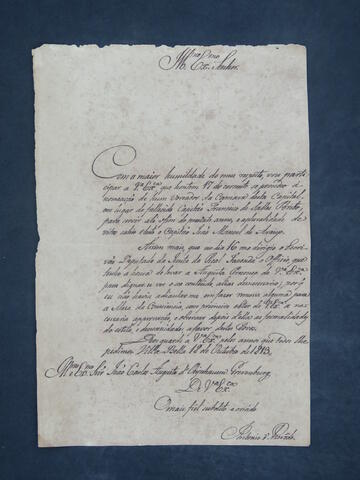 Illmo. e Exmo.
Senhor.
Com a maior humildade do meu respeito, vou parti-
cipar a V.Exca. que hontem 17 do corrente se procedeo á
nomeação de hum Vereador da Camara desta Capital,
em lugar do fallecido Capitão Francisco de
para servir até o fim do prezente anno, e a pluralidade de
votos sahio eleito o Capitão João Manoel de Araujo.
mais, que no dia 16 me dirigio o Escri-
vão Deputado da Junta da Real Fazenda o Officio, que
tenho a honra de levar á Augusta Prezença de V.Exca.
para dignar-se ver o seu conteudo,
eu não havia
a Meza do Commercio, sem primeiro obter de V.Exca. a ne-
cessaria approvação, e observar depois d'ella as formalidades
do estilo, e
Deos guarde a V.Exca. pelos annos que todos lhe
pedimos. Villa Bella 18 de Outubro de 1813.
Illmo. e Exmo. Snr. João Carlos Augusto d'Oeynhausen Gravenburg
De V.Exca.
O mais fiel subdito e criado
Antonio